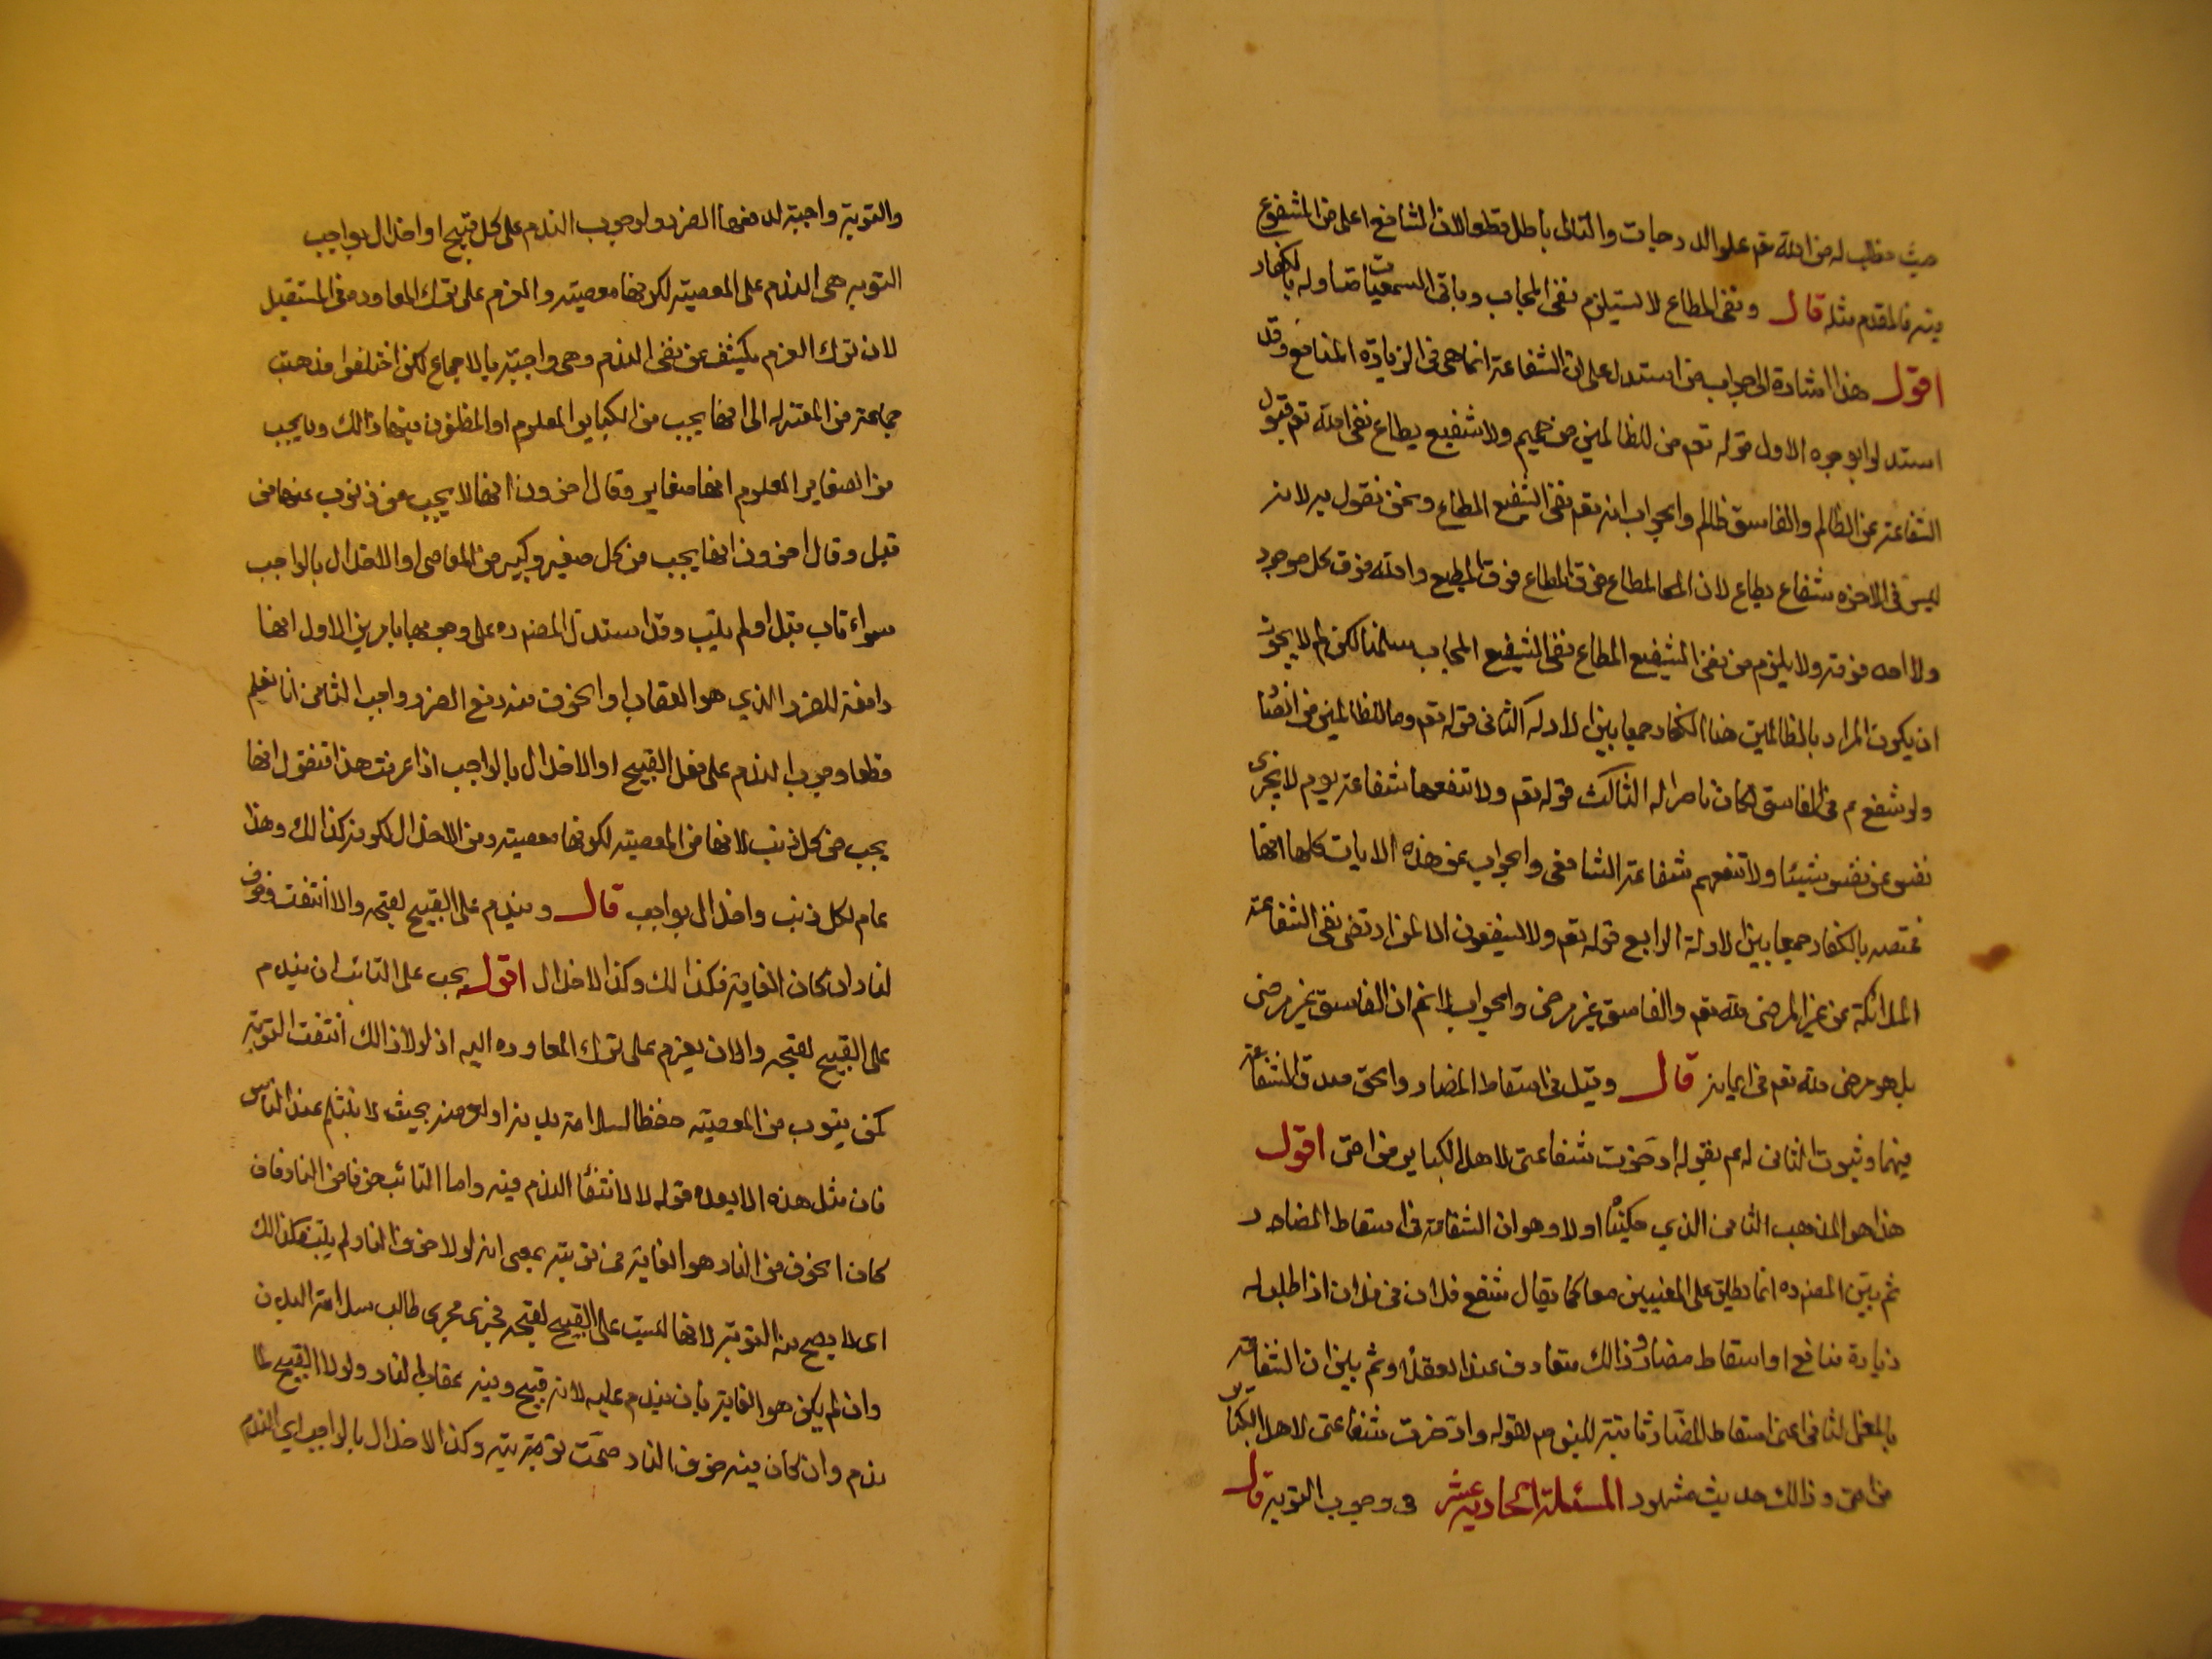 حيث نطلب له من الله تعم علو الدرجات والتالى باطل قطعا لان الشافع اعلى من المشفوع
فيه فالمقدم مثله قال ونفى المطاع لا يستلزم نفى المجاب وباقى السمعيات متاوله بالكفار
اقول هذا اشارة الى جواب من استدل على ان الشفاعة انما هى فى الزيادة المنافع وقد
استدلوا بوجوه الاول قوله تعم من للظالمين من حميم ولا شفيع يطاع نفى الله تعم قبول
الشفاعة عن الظالم والفاسق ظالم والجواب انه تعم نفى الشفيع المطاع ونحن نقول به لانه
ليس فى الاخره شفاع يطاع لان المطاع فوق المطيع والله فوق كل موجود
ولا احد فوقه ولا يلزم من نفى الشفيع المطاع نفى الشفيع المجاب سلمنا لكن لم لا يجوز
ان يكون المراد بالظالمين هنا الكفار جمعا بين الادله الثانى قوله تعم وما للظالمين من انصار
ولو شفع عم فى الفاسق لكان ناصرا له الثالث قوله تعم ولا تنفعها شفاعة يوم لا تجزى
نفس عن نفس شيئا ولا تنفعهم شفاعة الشافعى والجواب عن هذه الايات كلها انها
مختصه بالكفار جمعا بين الادلة الرابع قوله تعم ولا يشفعون الا لمن ارتضى نفى الشفاعته
الملائكة عن غير المرضى لله تعم والفاسق غير مرضى والجواب لا نم ان الفاسق غير مرضى
بل هو مرضى لله تعم فى ايمانه قال وقيل فى اسقاط المضار والحق صدق الشفاعة
فيهما وثبوت الثانى له عم بقوله ادخرت شفاعتى لاهل الكباير من امتى اقول
هذا هو المذهب الثانى الذي حكيناه اولا وهو ان الشفاعة فى اسقاط المضار
ثم بين المصنف ره انما تطلق على المعنيين معا كما يقال شفع فلان فى فلان اذا طلب له
زيادة منافع او اسقاط مضار وذالك متعارف عند العقلاء ثم بين ان الشفاعة
بالمعنى الثانى اعنى اسقاط المضار ثابتة للنبى ص لقوله ادخرت شفاعتى لاهل الكباير
من امتى وذالك حديث مشهور المسئلة الحاديه عشر فى وجوب التوبه قال
والتوبة واجبة لدفعها الضرر ولوجوب الندم على كل قبيح او اخلال بواجب
التوبه هى الندم على المعصيته لكونها معصيته والعزم على ترك المعاوده فى المستقبل
لان ترك العزم يكشف عن نفى الندم وهى واجبته بالاجماع لكن اختلفوا فذهب
جماعة من المعتزله الى انها يجب من الكباير المعلوم او المظنون فيها ذالك ولا يجب
من الصغاير المعلوم انها صغاير وقال اخرون انها لا يجب عن ذنوب عنها من
قبل وقال اخرون انها يجب من كل صغير وكبير من المعاصى او الاخلال بالواجب
سواء تاب قبل او لم يتب وقد استدل المصنف ره على وجوبها بامرين الاول انها
دافعة للضرر الذي هو العقاب او الخوف منه ودفع الضرر واجب الثانى انا نعلم
قطعا وجوب الندم على فعل القبيح او الاخلال بالواجب اذا عرفت هذا فنقول انها
يجب من كل ذنب لانها من المعصيته لكونها معصيته ومن الاخلال لكونه كذالك وهذا
عام لكل ذنب واخلال بواجب قال ويندم على القبيح لقبحه والا انتفت وخوف
النار ان كان الغاية فكذالك وكذا الاخلال اقول يجب على التائب ان يندم
على القبيح لقبحه وان يعزم على ترك المعاوده اليه اذ لولا ذالك انتفت التوبة
كمن يتوب من المعصيته حفظا لسلامة بدنه او لعرضه بحيث لا ينثلم عند الناس
فان مثل هذه لا يعد توبه لانتفاء الندم فيه واما التائب خوفا من النار فان
كان الخوف من النار هو الغاية فى توبته بمعنى انه لولا خوف النار لم يتب فكذالك
اى لا يصح منه التوبة لانها ليست على القبيح لقبحه فجرى مجرى طالب سلامة البدن
وان لم يكن هو الغاية بان يندم عليه لانه قبيح وفيه عقاب النار ولولا القبيح لما
ندم وان كان فيه خوف النار صحت توبته وكذا الاخلال بالواجب اي الندم